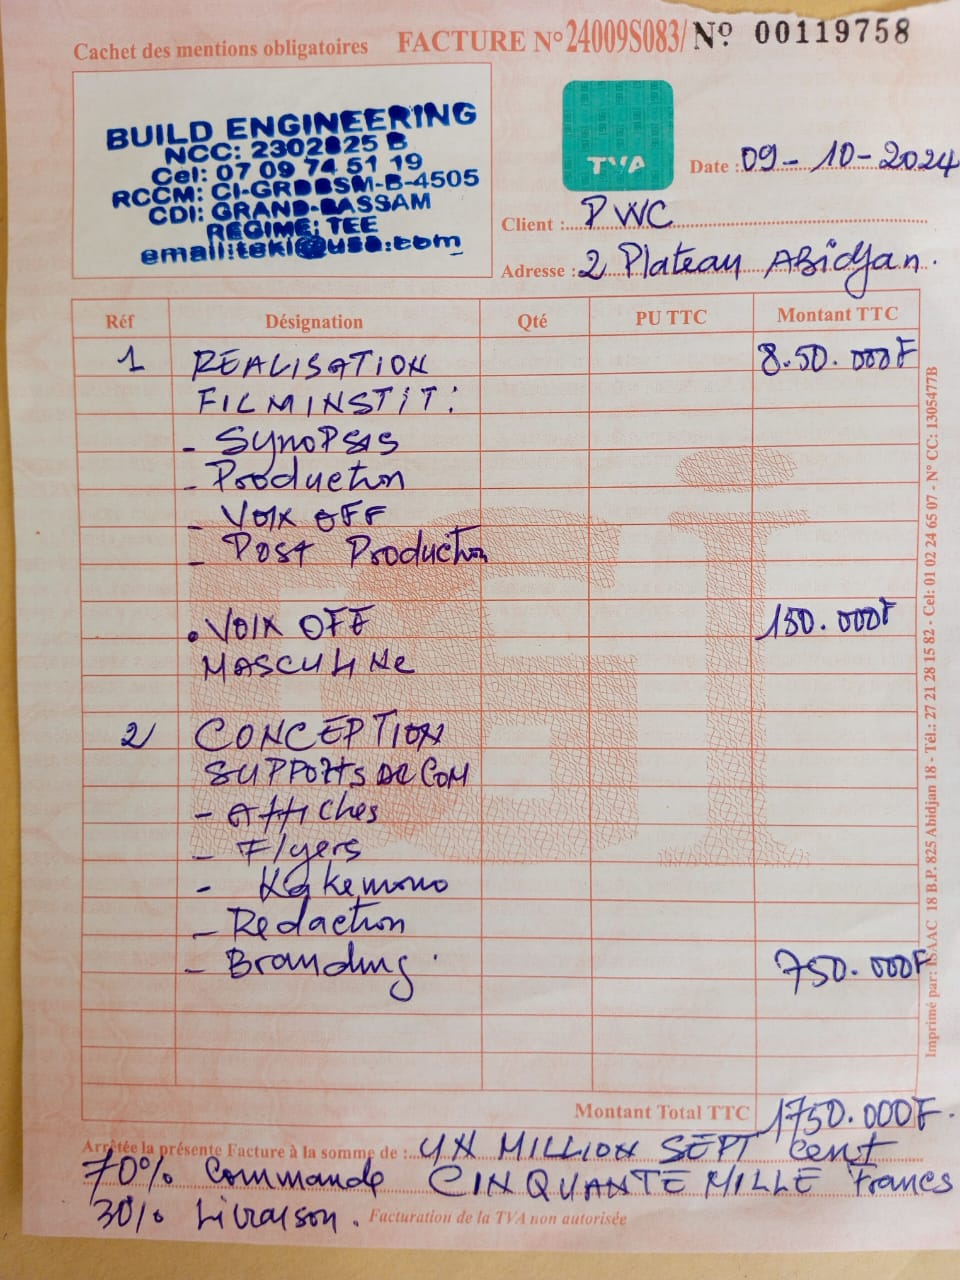 Cachet des mentions obligatoires
FACTURE N° 24009S083/ No 00119758
BUILD ENGINEERING
NCC: 2302825 B
Cel: 07 09 74 51 19
RCCM: CI-GRDBSM-B-4505
CDI: GRAND-BASSAM
REGIME: TEE
TVA
Date : 09-10-2024
Client : PWC
Adresse : 2 Plateau Abidjan.
Réf Désignation Qté PU TTC Montant TTC
1 REALISATION 8.50.000F
FILM INSTIT :
- Synopsis
- Production
- VOIX OFF
- Post Production
• VOIX OFF 150.000F
MASCULINE
2 CONCEPTION
SUPPORTS DE COM
- Affiches
- Flyers
- Kakemono
- Redaction
- Branding. 750.000F
Montant Total TTC 1750.000F.
Arrêtée la présente Facture à la somme de : UN MILLION SEPT Cent
70% Commande CINQUANTE MILLE Francs
30% Livraison. Facturation de la TVA non autorisée
Imprimé par: ISAAC 18 B.P. 825 Abidjan 18 - Tél.: 27 21 28 15 82 - Cel: 01 02 24 65 07 - N° CC: 1305477B